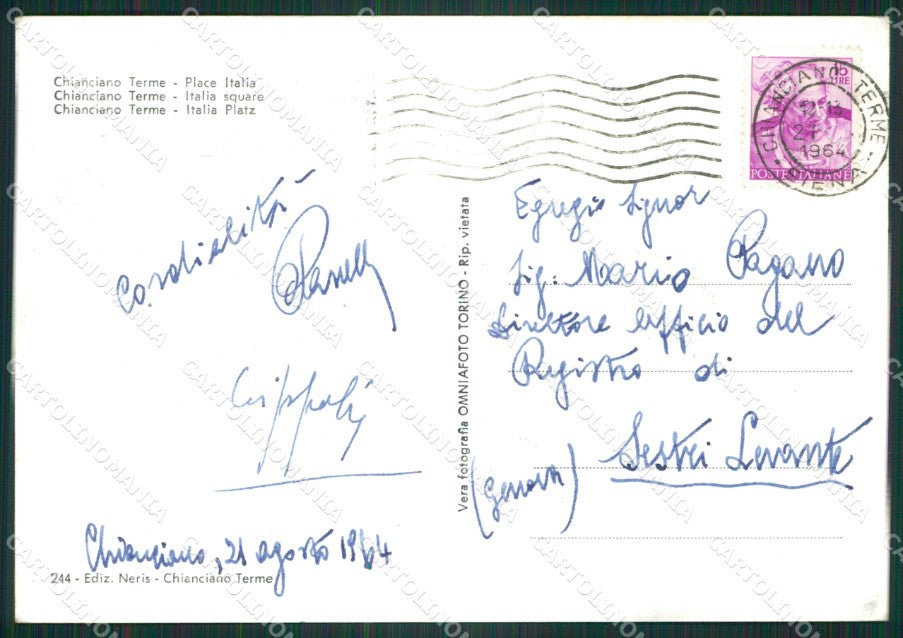 Chianciano Terme - Place Italia
Chianciano Terme - Italia square
Chianciano Terme - Italia Platz
Cordialità
Chianciano, 21 agosto 1964
244 - Ediz. Neris - Chianciano Terme
Vera fotografia OMNIAFOTO TORINO - Rip. vietata
15
LIRE
POSTE ITALIANE
CHIANCIANO TERME
1964
SIENA
Egregio Signor
Sig. Mario Pagano
Direttore Ufficio del
Registro di
Sestri Levante
(Genova)
CARTOLINOMANIA